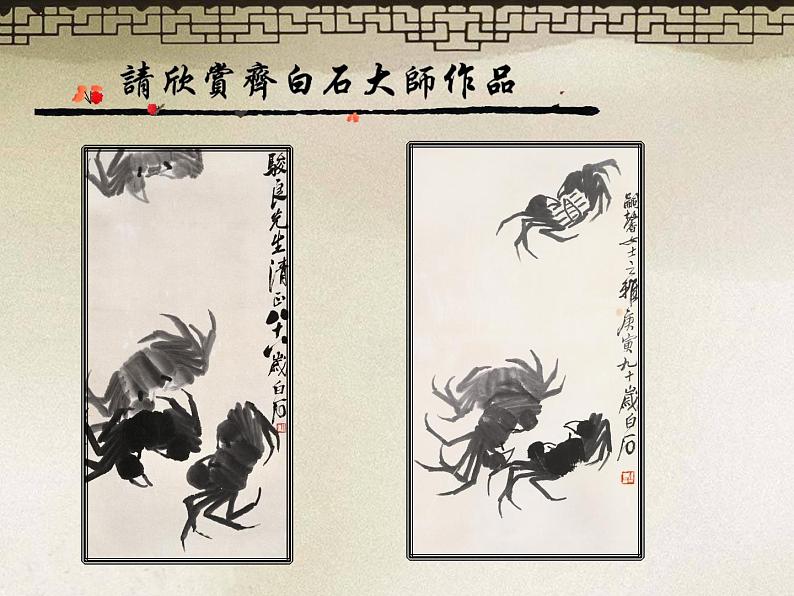 請欣賞齊白石大師作品
駿良先生清正八十八歲白石
嗣馨女士之雅庚寅九十歲白石